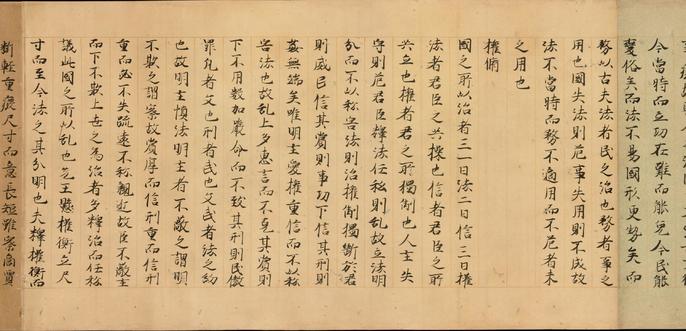 今當時而立功在難而能免今民能
變俗矣而法不易國形更勢矣而
務以古夫法者民之治也務者事之
用也國失法則危事失用則不成故
法不當時而務不適用而不危者未
之用也
權脩
國之所以治者三一曰法二曰信三曰權
法者君臣之共操也信者君臣之所
共立也權者君之所獨制也人主失
守則危君臣釋法任私則亂故立法明
分而不以私害法則治權制獨斷於君
則威民信其賞則事功下信其刑則
姦無端矣唯明主愛權重信而不以私
害法也故乱上多惠言而不克其賞則
下不用數加嚴令而不致其刑則民傲
罪凡者文也刑者武也文武者法之約
也故明主慎法明主者不蔽之謂明
不欺之謂察故賞厚而信刑重而信刑
重而必不失疏遠不私親近故臣不蔽主
而下不欺上世之為治者多釋治而任私
議此國之所以乱也先王懸權衡立尺
寸而至今法之其分明也夫釋權衡而
斷輕重廢尺寸而意長短雖察商賈